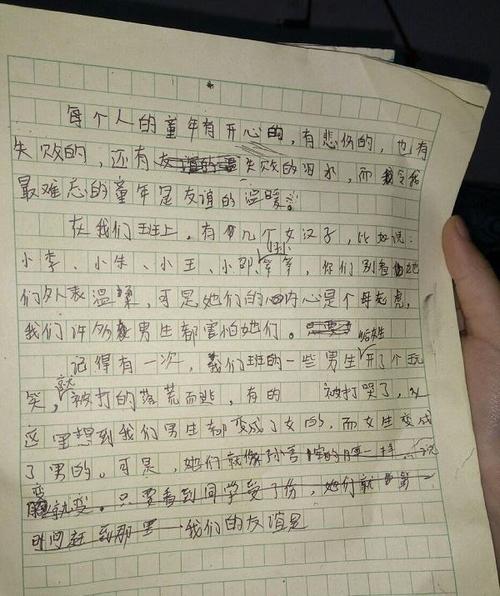 每个人的童年有开心的，有悲伤的，也有
失败的，还有友谊的温失败的泪水，而我令我
最难忘的童年是友谊的温暖。
在我们班上，有几个女汉子，比如说：
小李、小朱、小王、小邵、等等，你们别看她
们外表温柔，可是她们的内心是个母老虎，
我们许多男生都害怕她们。
记得有一次，我们班的一些男生开了个玩
笑，就被打的落荒而逃，有的 被打哭了，从
这里想到我们男生都变成了女的，而女生变成
了男的。可是，她们就像孙言空的脸一样，说
变就变。只要看到同学受了伤，她们就第一
时间赶到那里 我们的友谊是